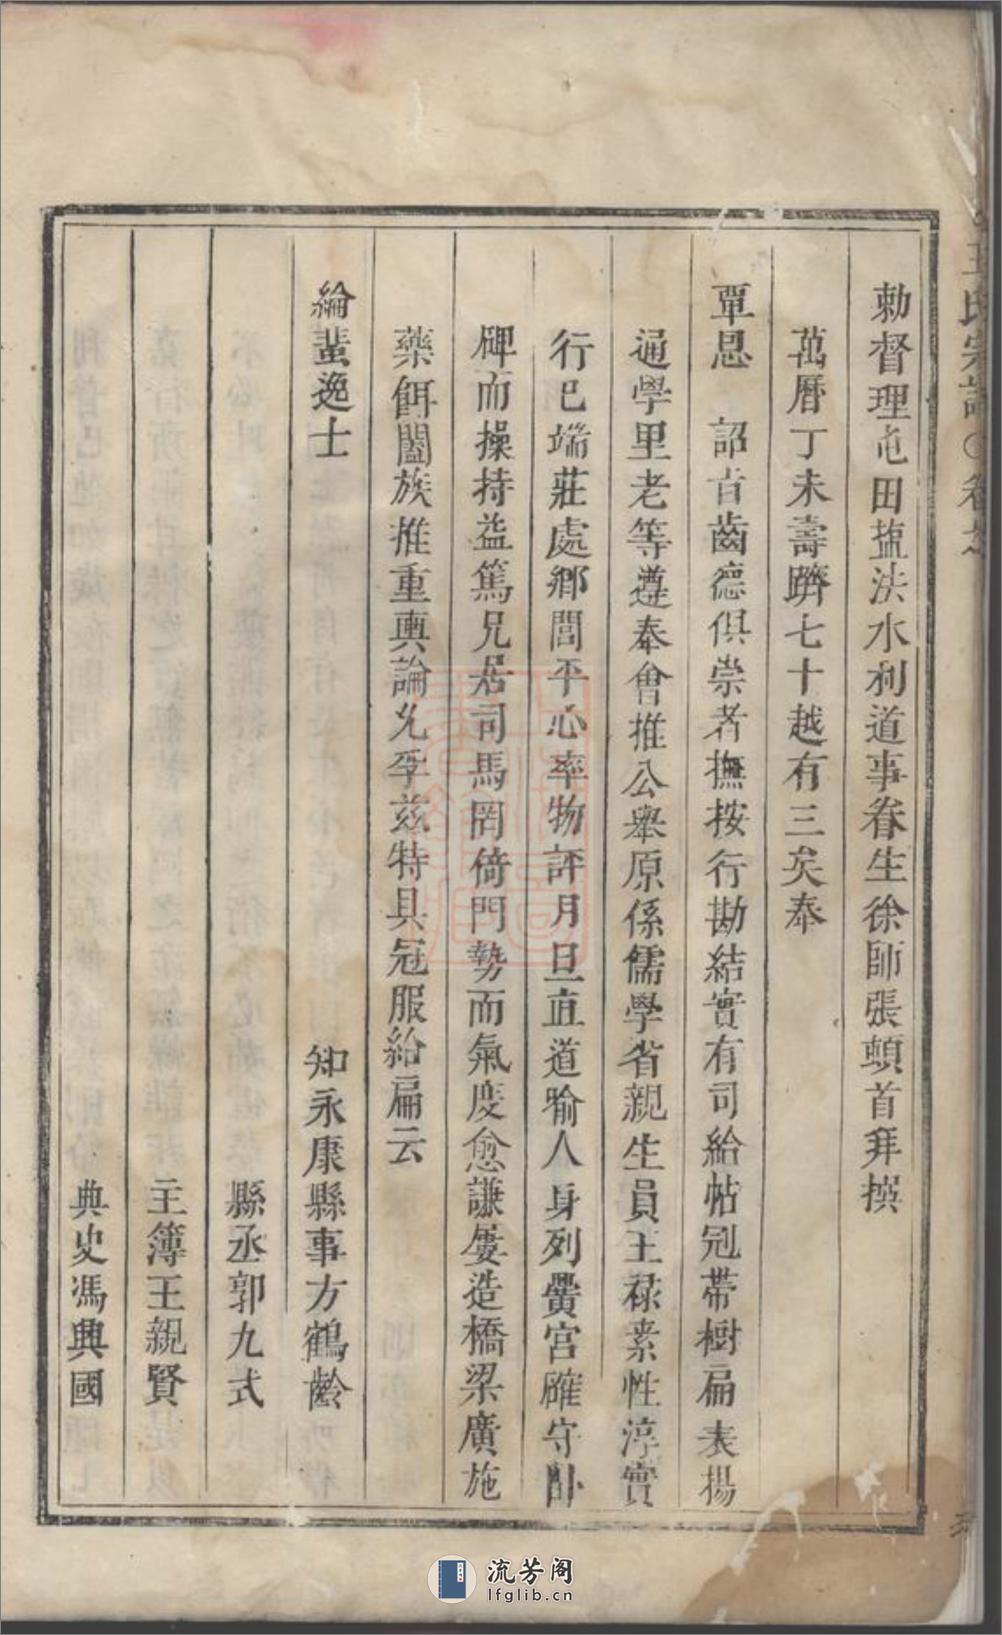 勅督理屯田塩法水利道事眷生徐師張頓首拜撰
萬曆丁未壽躋七十越有三矣奉
覃恩 詔旨齒德俱崇者撫按行勘結實有司給帖冠帶樹扁表揚
通學里老等遵奉會推公舉原係儒學省親生員王祿素性淳實
行己端莊處鄉閭平心率物評月旦直道喻人身列黌宮確守卧
碑而操持益篤兄居司馬罔倚門勢而氣度愈謙屢造橋梁廣施
藥餌闔族推重輿論允孚兹特具冠服給扁云
綸蜚逸士 知永康縣事方鶴齡
縣丞郭九式
主簿王親賢
典史馮興國
王氏宗譜 卷之
流芳阁
lfglib.cn